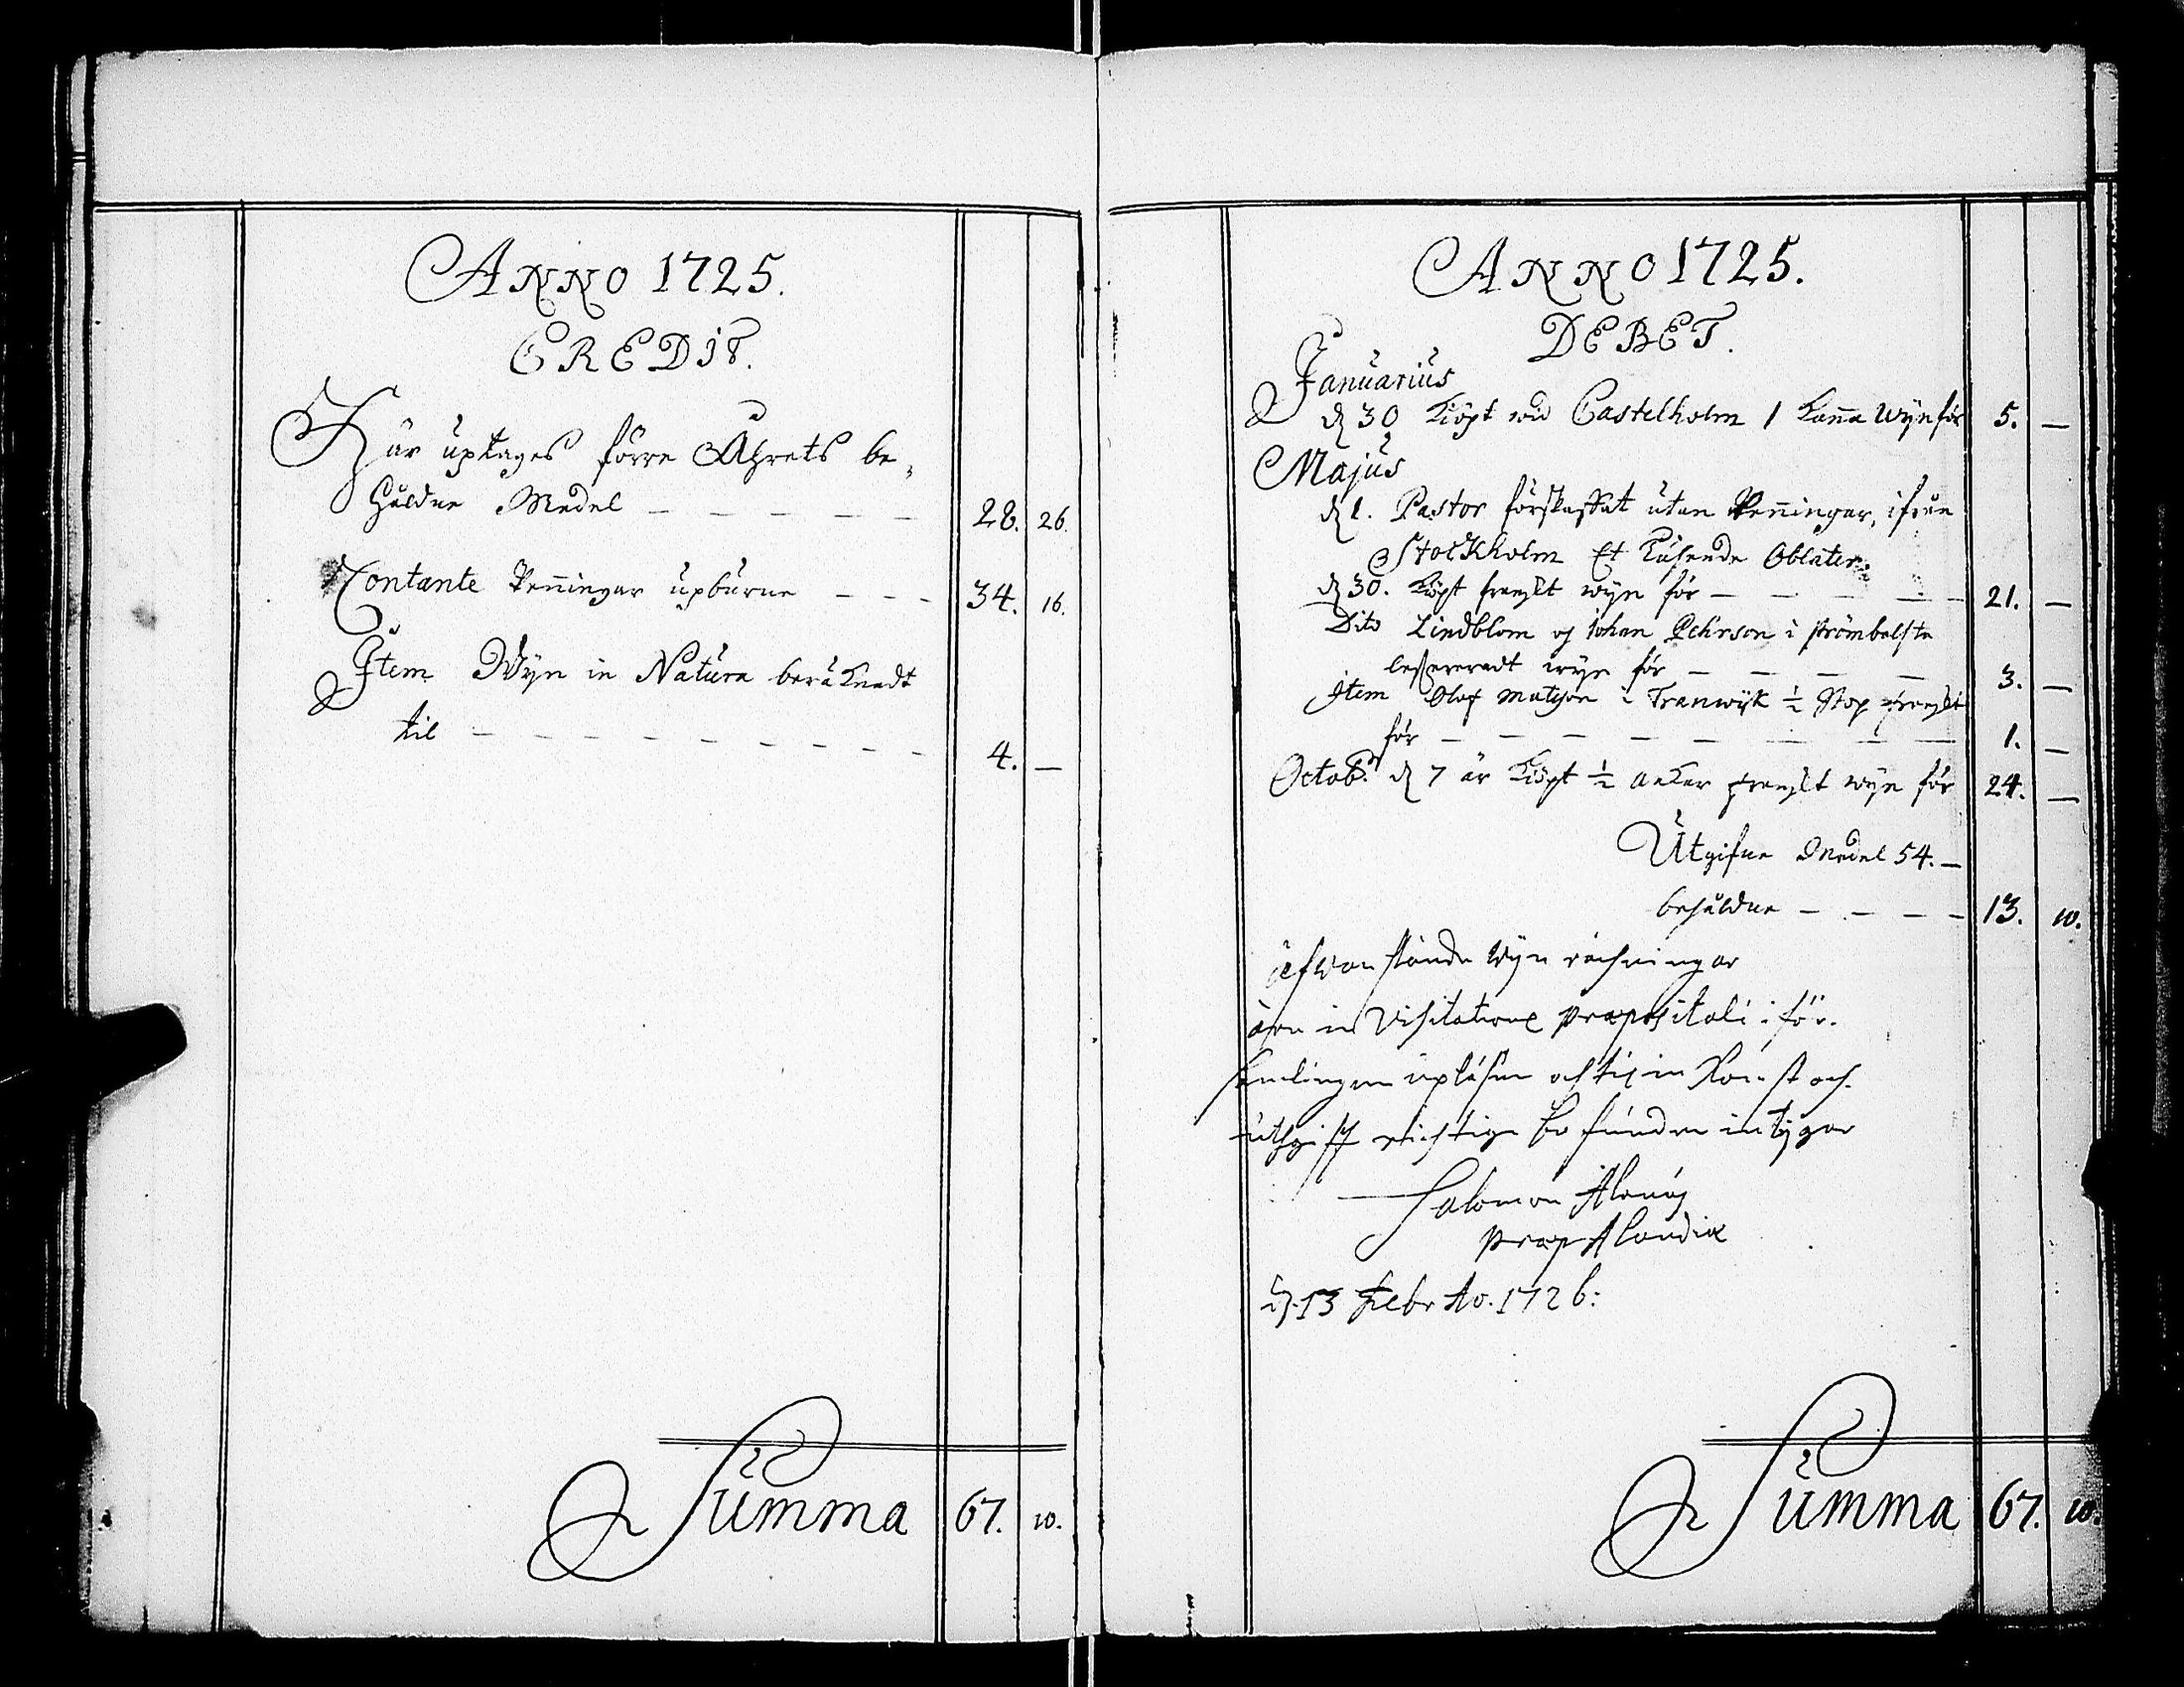 ANNO 1725.
CREDIT.
Här uptages förre Åhrets be„
håldne Medel — — — — — 28. 26.
Contante Penningar upburne — — — 34. 16.
Item Wyn in Natura beräknadt
til — — — — — — — — 4. —
Summa 67. 10.
ANNO 1725.
DEBET.
Januarius
d 30 Kiöpt wid Castelholm 1 Kanna Wyn för 5. —
Majus
d 1. Pastor förskaffat utan Penningar, ifrån
Stockholm Et Tusende Oblater.
d 30. Köpt franskt wyn för — — — — 21. —
Dito Lindblom og Johan Pehrson i Strömbolsta
lefwereradt wyn för — — — — 3. —
Item Olof Matzson i Tranwijk ½ Stop franskt
för — — — — — — — — 1. —
Octob. d 7 är Kiöpt ½ anKar franskt wyn för 24. —
Utgifne Medel 54. —
behåldne — — — — 13. 10.
åfwan stånde Wyn räckningar
äro in Visitatione præpositali i för-
samlingen upläsne och til in Komst och
uthgifft richtige be fundne intygar
Salomon
præp Alandiæ
d. 13 Febr Ao. 1726:
Summa 67. 10.